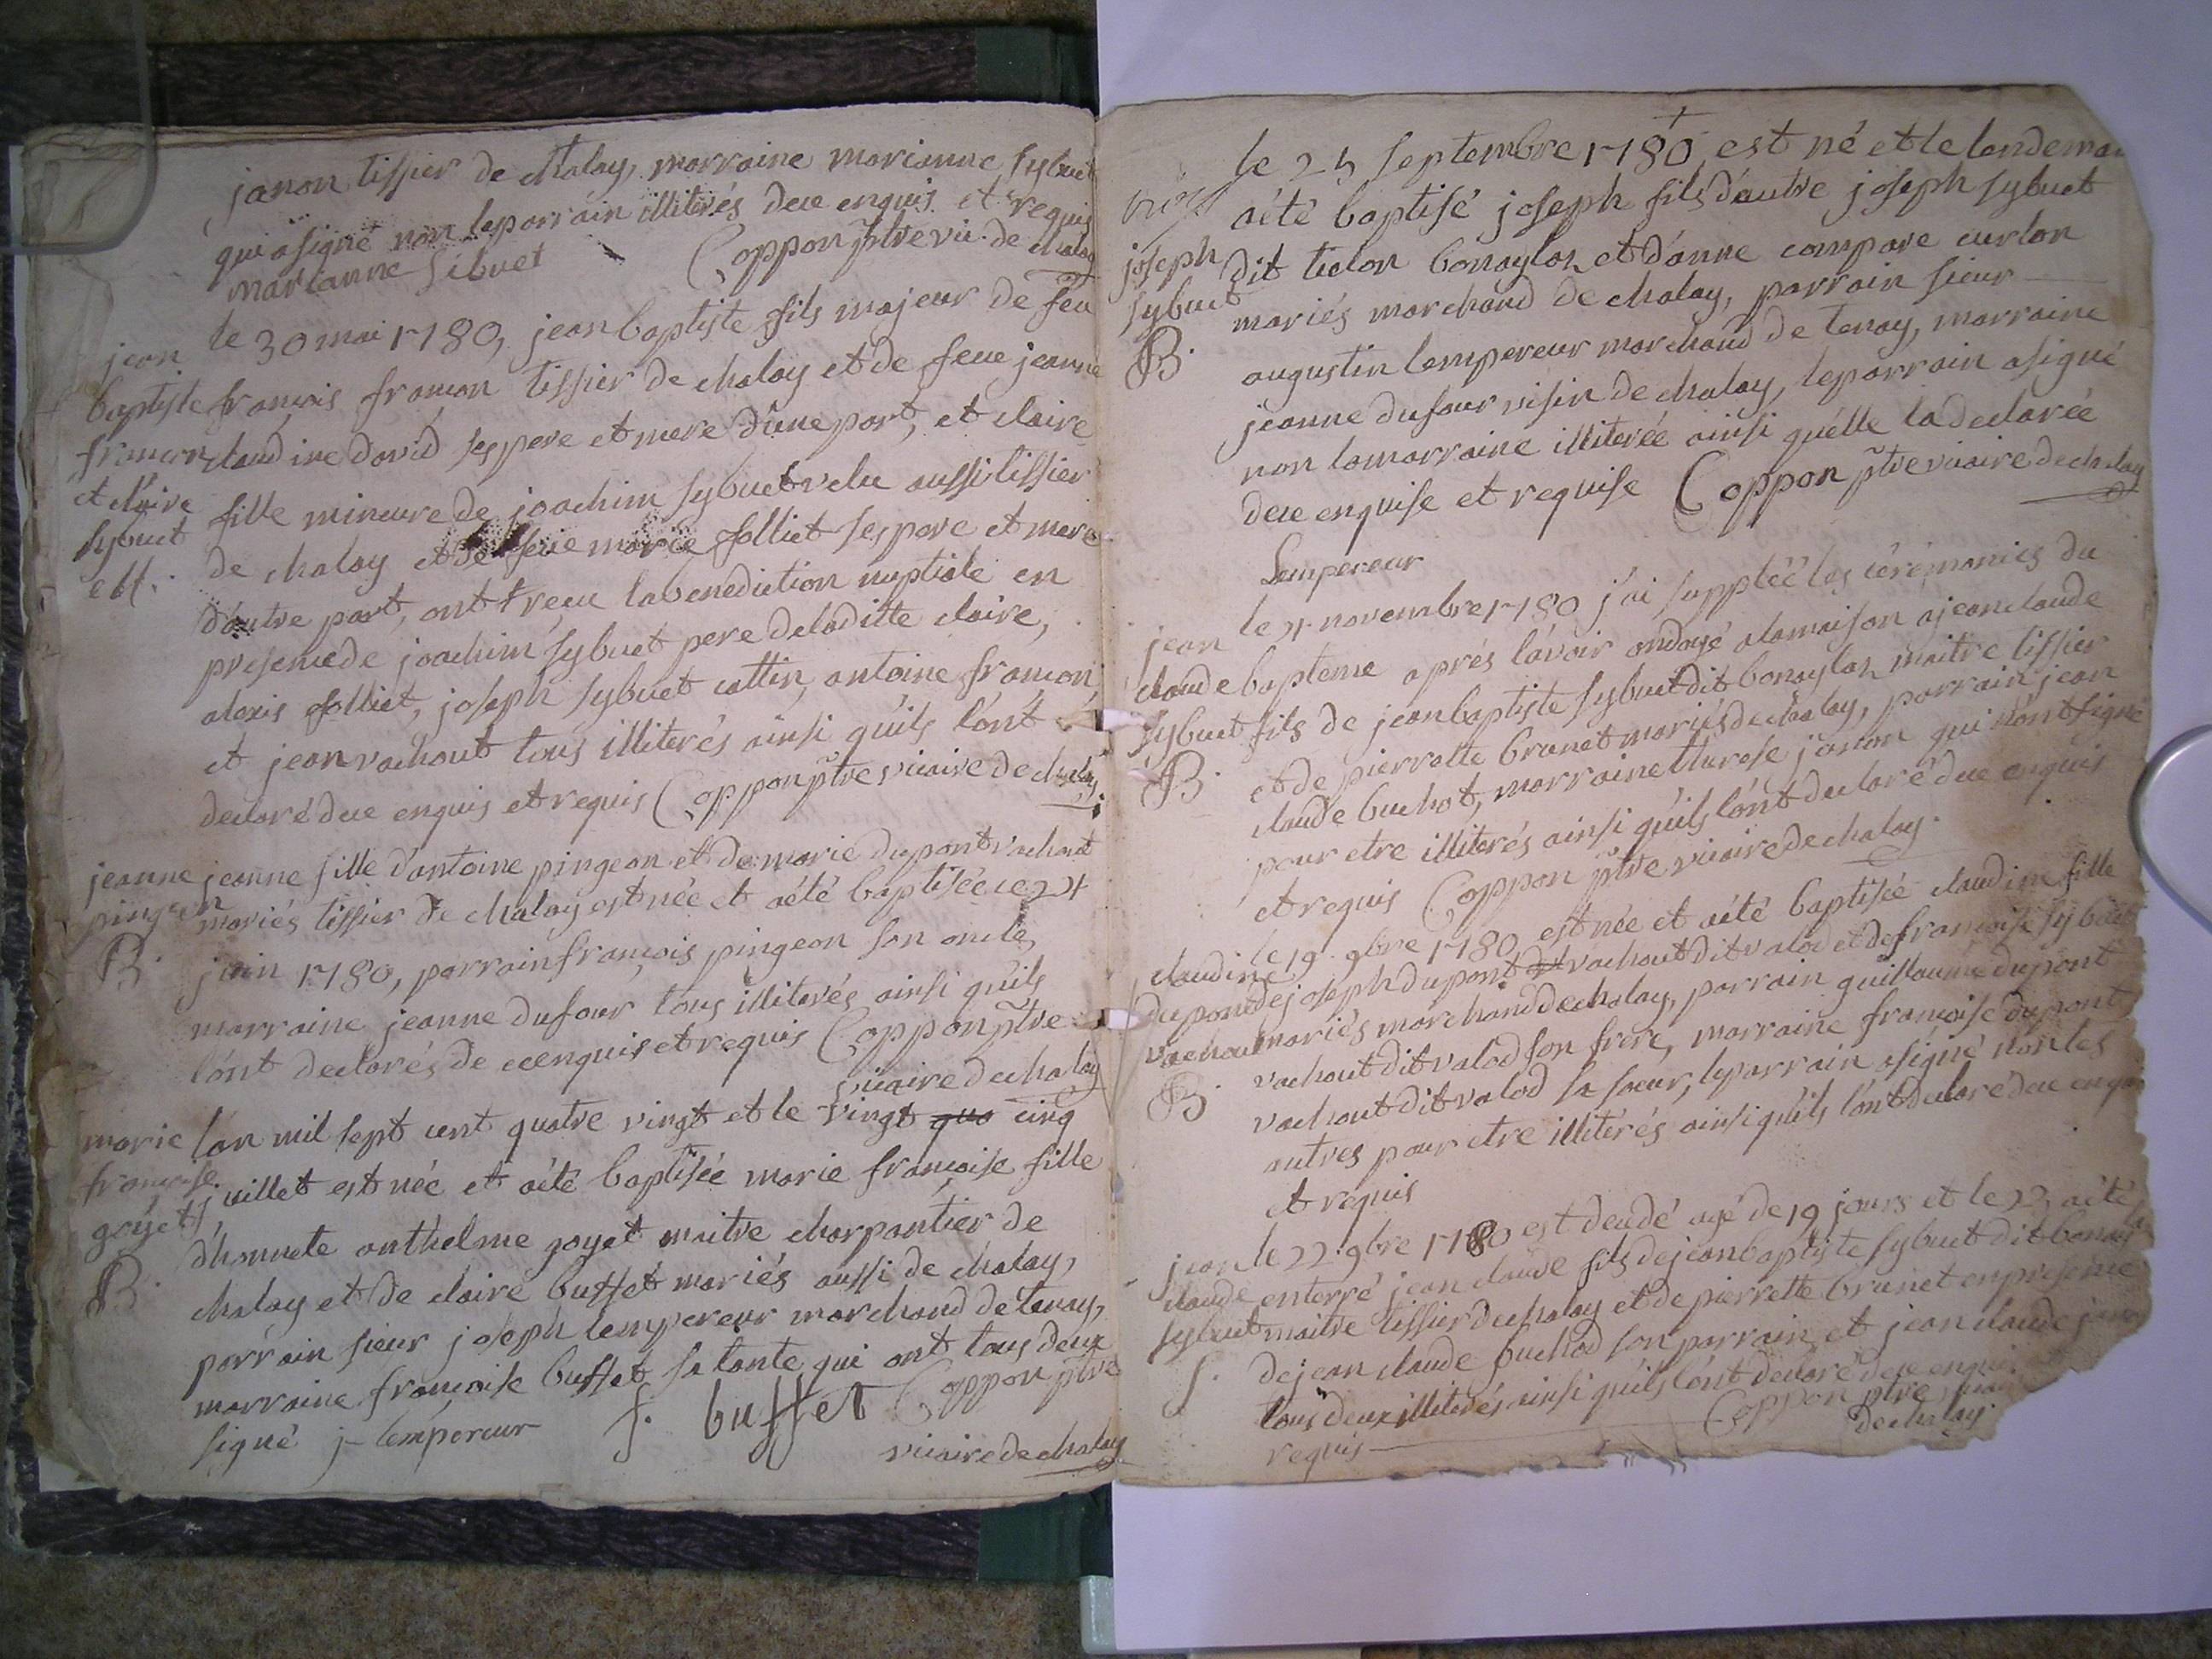 janon tissier de chaley, marraine marianne sybuet
qui asigné non leparrain illiterés deue enquis et requis
marianne sibuet Coppon ptre vic. de chaley
le 30 mai 1780, jean baptiste fils majeur de feu
jean
baptiste
francon
et claire
sybuet
M.
françois francon tissier de chaley et de feue jeanne
claudine david ses pere et mere d'une part, et claire
fille mineure de joachim sybuet velu aussi tissier
de chaley et de feue marie folliet ses pere et mere
d'autre part, ont reçeu labenediction nuptiale en
presence de joachim sybuet pere deladitte claire,
alexis folliet, joseph sybuet cattin, antoine francon
et jean vachout tous illiterés ainsi qu'ils l'ont
declaré deue enquis et requis Coppon ptre vicaire de chaley
jeanne
pingeon
B.
jeanne fille d'antoine pingeon et de marie dupont vachout
mariés tissier de chaley est née et aété baptisée ce 24
juin 1780, parrain françois pingeon son oncle,
marraine jeanne dufour tous illiterés ainsi qu'ils
l'ont declarés de ce enquis et requis Coppon ptre
vicaire de chaley
marie
françoise
goyet
B.
l'an mil sept cent quatre vingt et le vingt qua cinq
juillet est née et aété baptisée marie françoise fille
d'honnete anthelme goyet maitre charpantier de
chaley et de claire buffet mariés aussi de chaley,
parrain sieur joseph lempereur marchand de tenay,
marraine françoise buffet sa tante qui ont tous deux
signé j lempereur f. buffet Coppon ptre
vicaire de chaley
joseph
sybuet
B.
le 25 septembre 1780 est né et le lendemain
aété baptisé joseph fils d'autre joseph sybuet
dit bonaylon et d'anne compare curlon
mariés marchand de chaley, parrain sieur
augustin lempereur marchand de tenay, marraine
jeanne dufour visin de chaley, leparrain asigné
non lamarraine illiterée ainsi qu'elle la declarée
deue enquise et requise Coppon ptre vicaire de chaley
Lempereur
jean
claude
sybuet
B.
le 4 novembre 1780 j'ai suppléé les cérémonies du
bapteme aprés l'avoir ondoyé alamaison a jean claude
fils de jean baptiste sybuet dit bonaylon maitre tissier
et de pierrette brunet mariés de chaley, parrain jean
claude buchot, marraine therese janon qui n'ont signé
pour etre illiterés ainsi qu'ils l'ont declaré deue enquis
et requis Coppon ptre vicaire de chaley.
claudine
dupond
vachout
B.
le 19. 9bre 1780 est née et aété baptisée claudine fille
de joseph dupont vachout dit valod et de françoise sybuet
mariés marchand de chaley, parrain guillaume dupont
vachout dit valod son frere, marraine françoise dupont
vachout dit valod sa soeur, leparrain asigné non les
autres pour etre illiterés ainsi qu'ils l'ont declaré deue enquis
et requis
jean
claude
sybuet
S.
le 22. 9bre 1780 est decedé agé de 19 jours et le 23 aété
enterré jean claude fils de jean baptiste sybuet dit bonay
maitre tissier de chaley et de pierrette brunet en presence
de jean claude buchod son parrain et jean claude
tous deux illiterés ainsi qu'ils l'ont declaré deue enquis
requis Coppon ptre
de chaley.